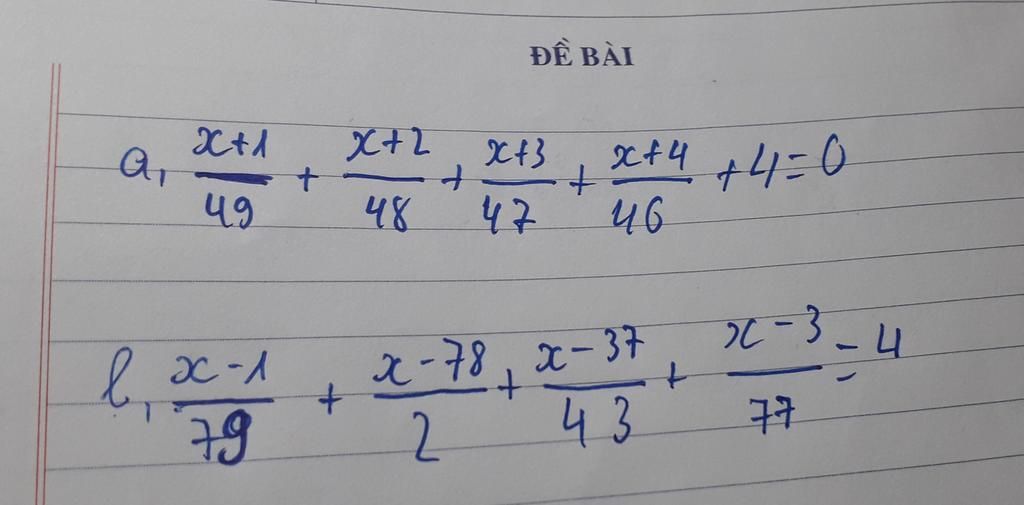 ĐỀ BÀI
a, \frac{x+1}{49} + \frac{x+2}{48} + \frac{x+3}{47} + \frac{x+4}{46} + 4 = 0
b, \frac{x-1}{79} + \frac{x-78}{2} + \frac{x-37}{43} + \frac{x-3}{77} = 4